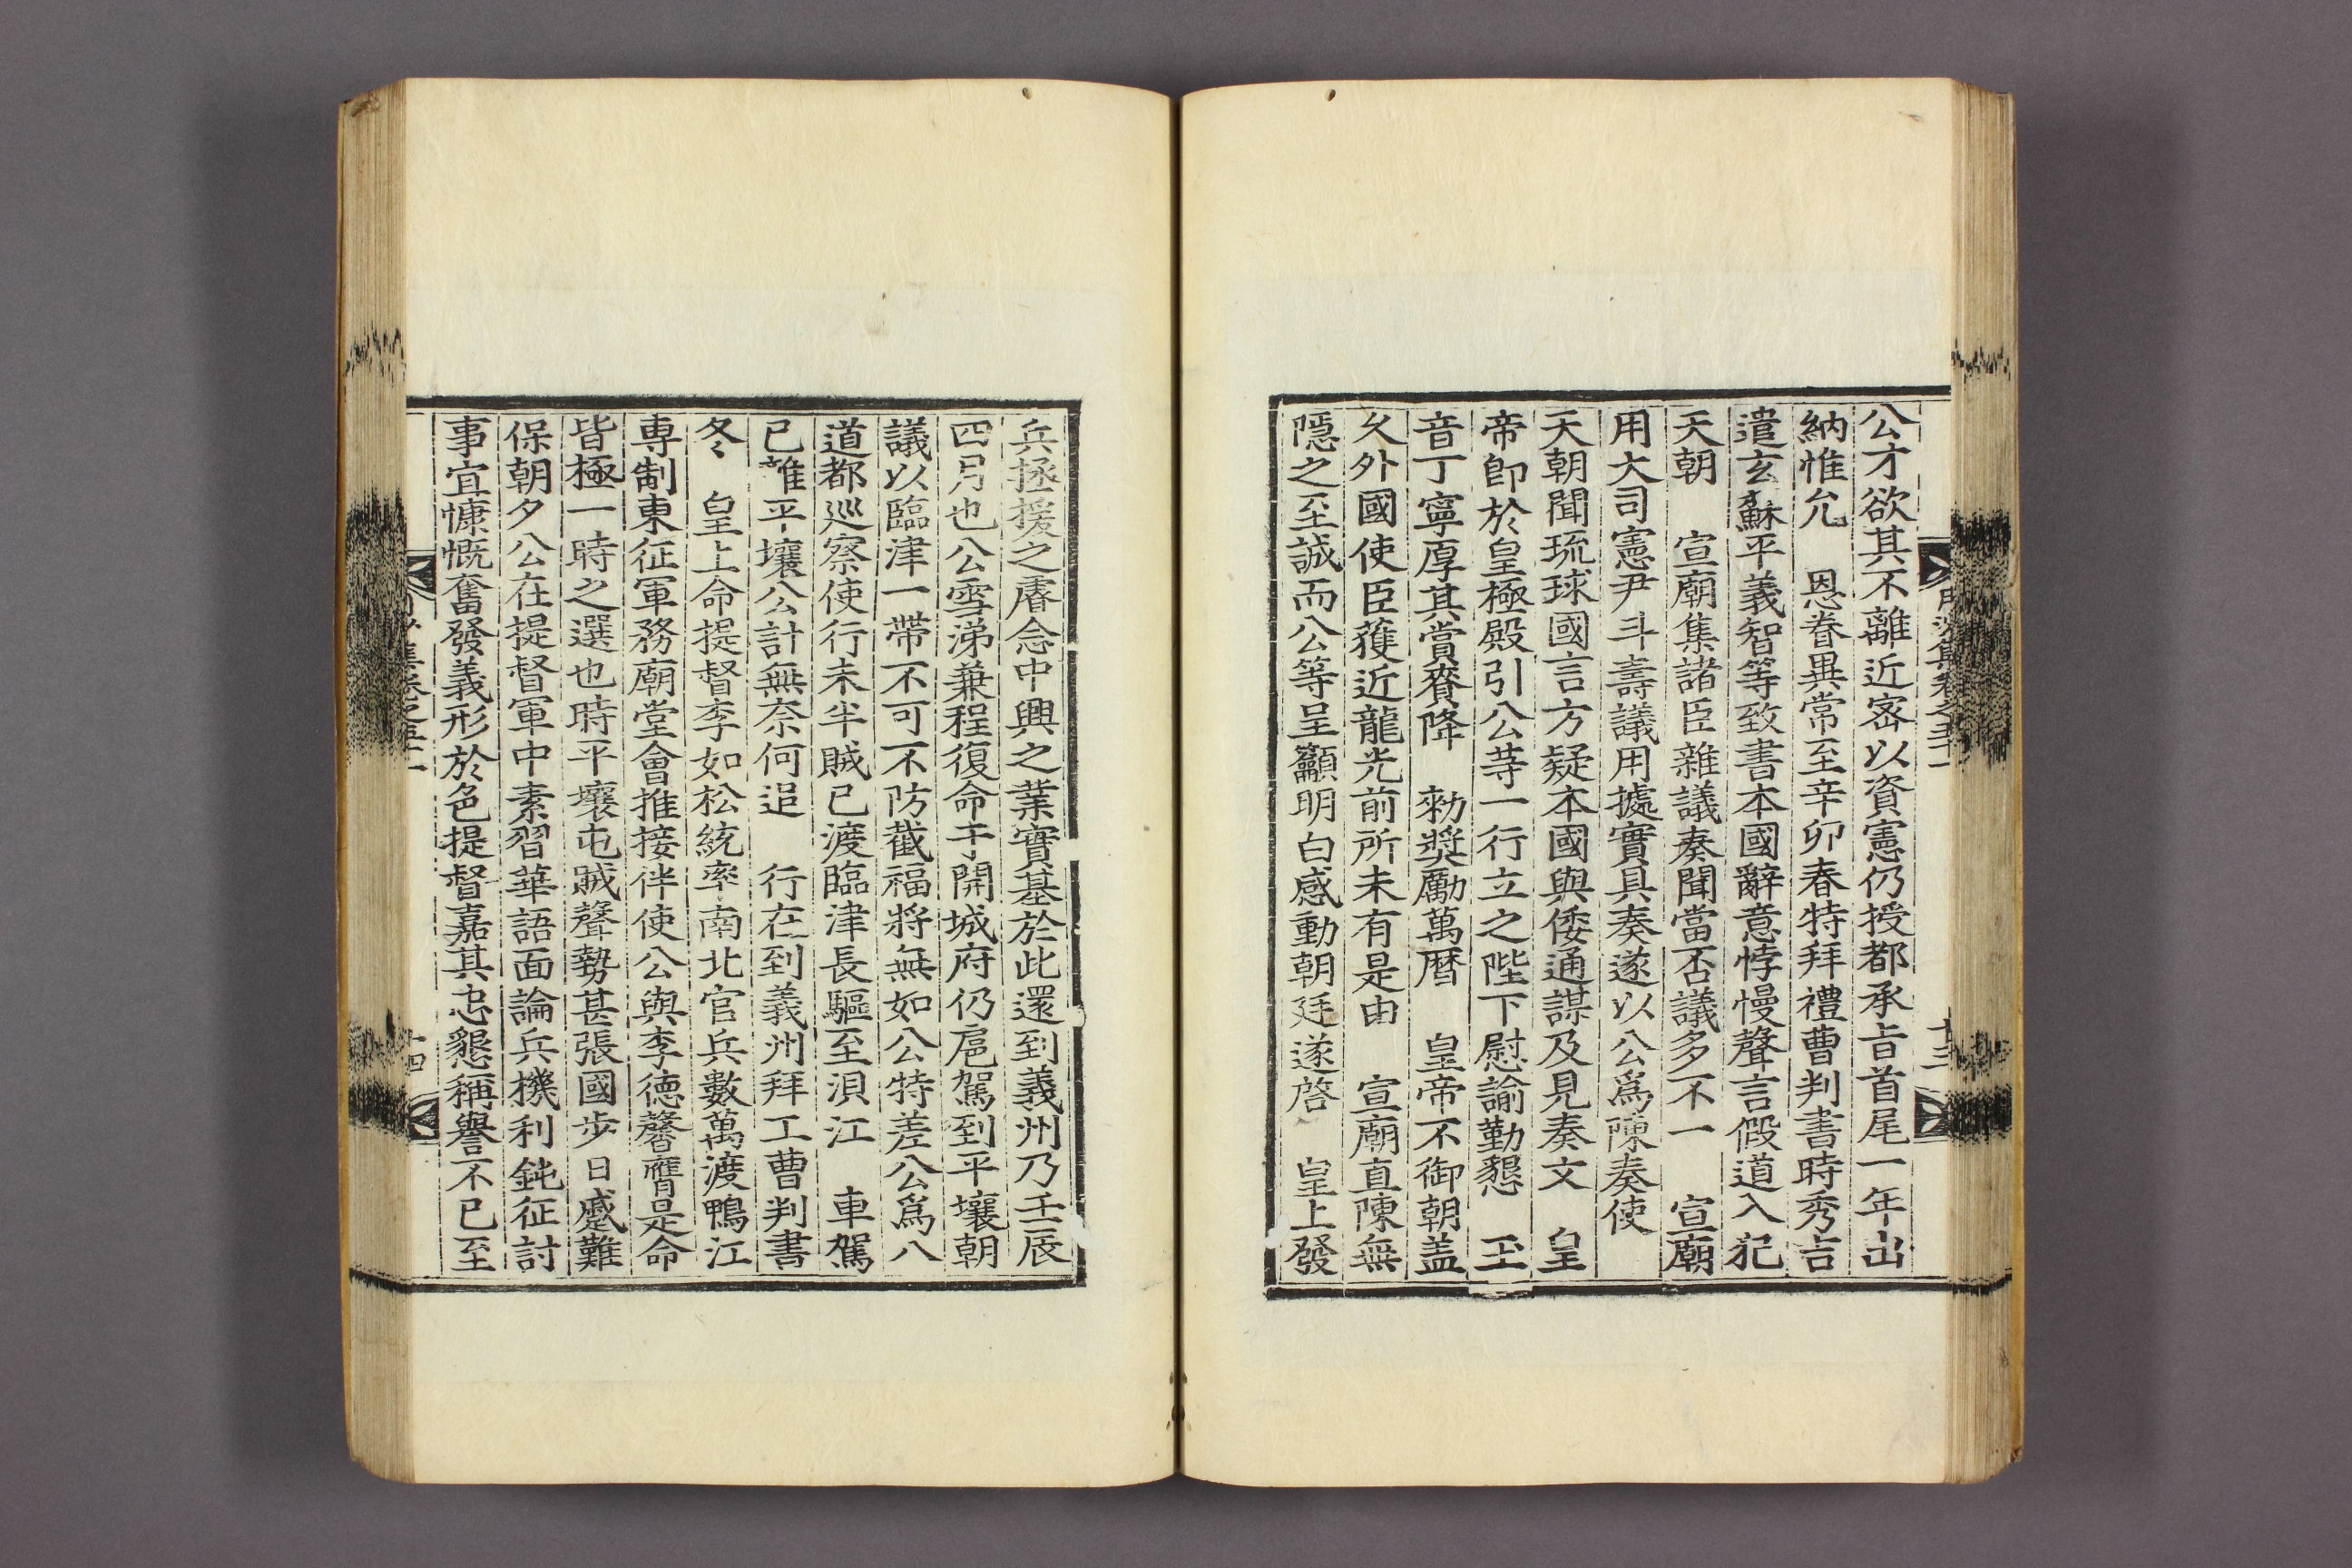 公才欲其不離近密以資憲仍授都承旨首尾一年出
納惟允　恩眷異常至辛卯春特拜禮曹判書時秀吉
遣玄蘇平義智等致書本國辭意悖慢聲言假道入犯
天朝　宣廟集諸臣雜議奏聞當否議多不一　宣廟
用大司憲尹斗壽議用據實具奏遂以公爲陳奏使
天朝聞琉球國言方疑本國與倭通謀及見奏文　皇
帝卽於皇極殿引公等一行立之陛下慰諭勤懇　玉
音丁寧厚其賞賚降　勑獎勵萬曆　皇帝不御朝盖
久外國使臣獲近龍光前所未有是由　宣廟直陳無
隱之至誠而公等呈籲明白感動朝廷遂啓　皇上發
兵拯援之睿念中興之業實基於此還到義州乃壬辰
四月也公雪涕兼程復命于開城府仍扈駕到平壤朝
議以臨津一帶不可不防截福將無如公特差公爲八
道都巡察使行未半賊已渡臨津長驅至浿江　車駕
已離平壤公計無奈何追　行在到義州拜工曹判書
冬　皇上命提督李如松統率南北官兵數萬渡鴨江
專制東征軍務廟堂會推接伴使公與李德馨膺是命
皆極一時之選也時平壤屯賊聲勢甚張國步日蹙難
保朝夕公在提督軍中素習華語面論兵機利鈍征討
事宜慷慨奮發義形於色提督嘉其忠懇稱譽不已至
十三
十四